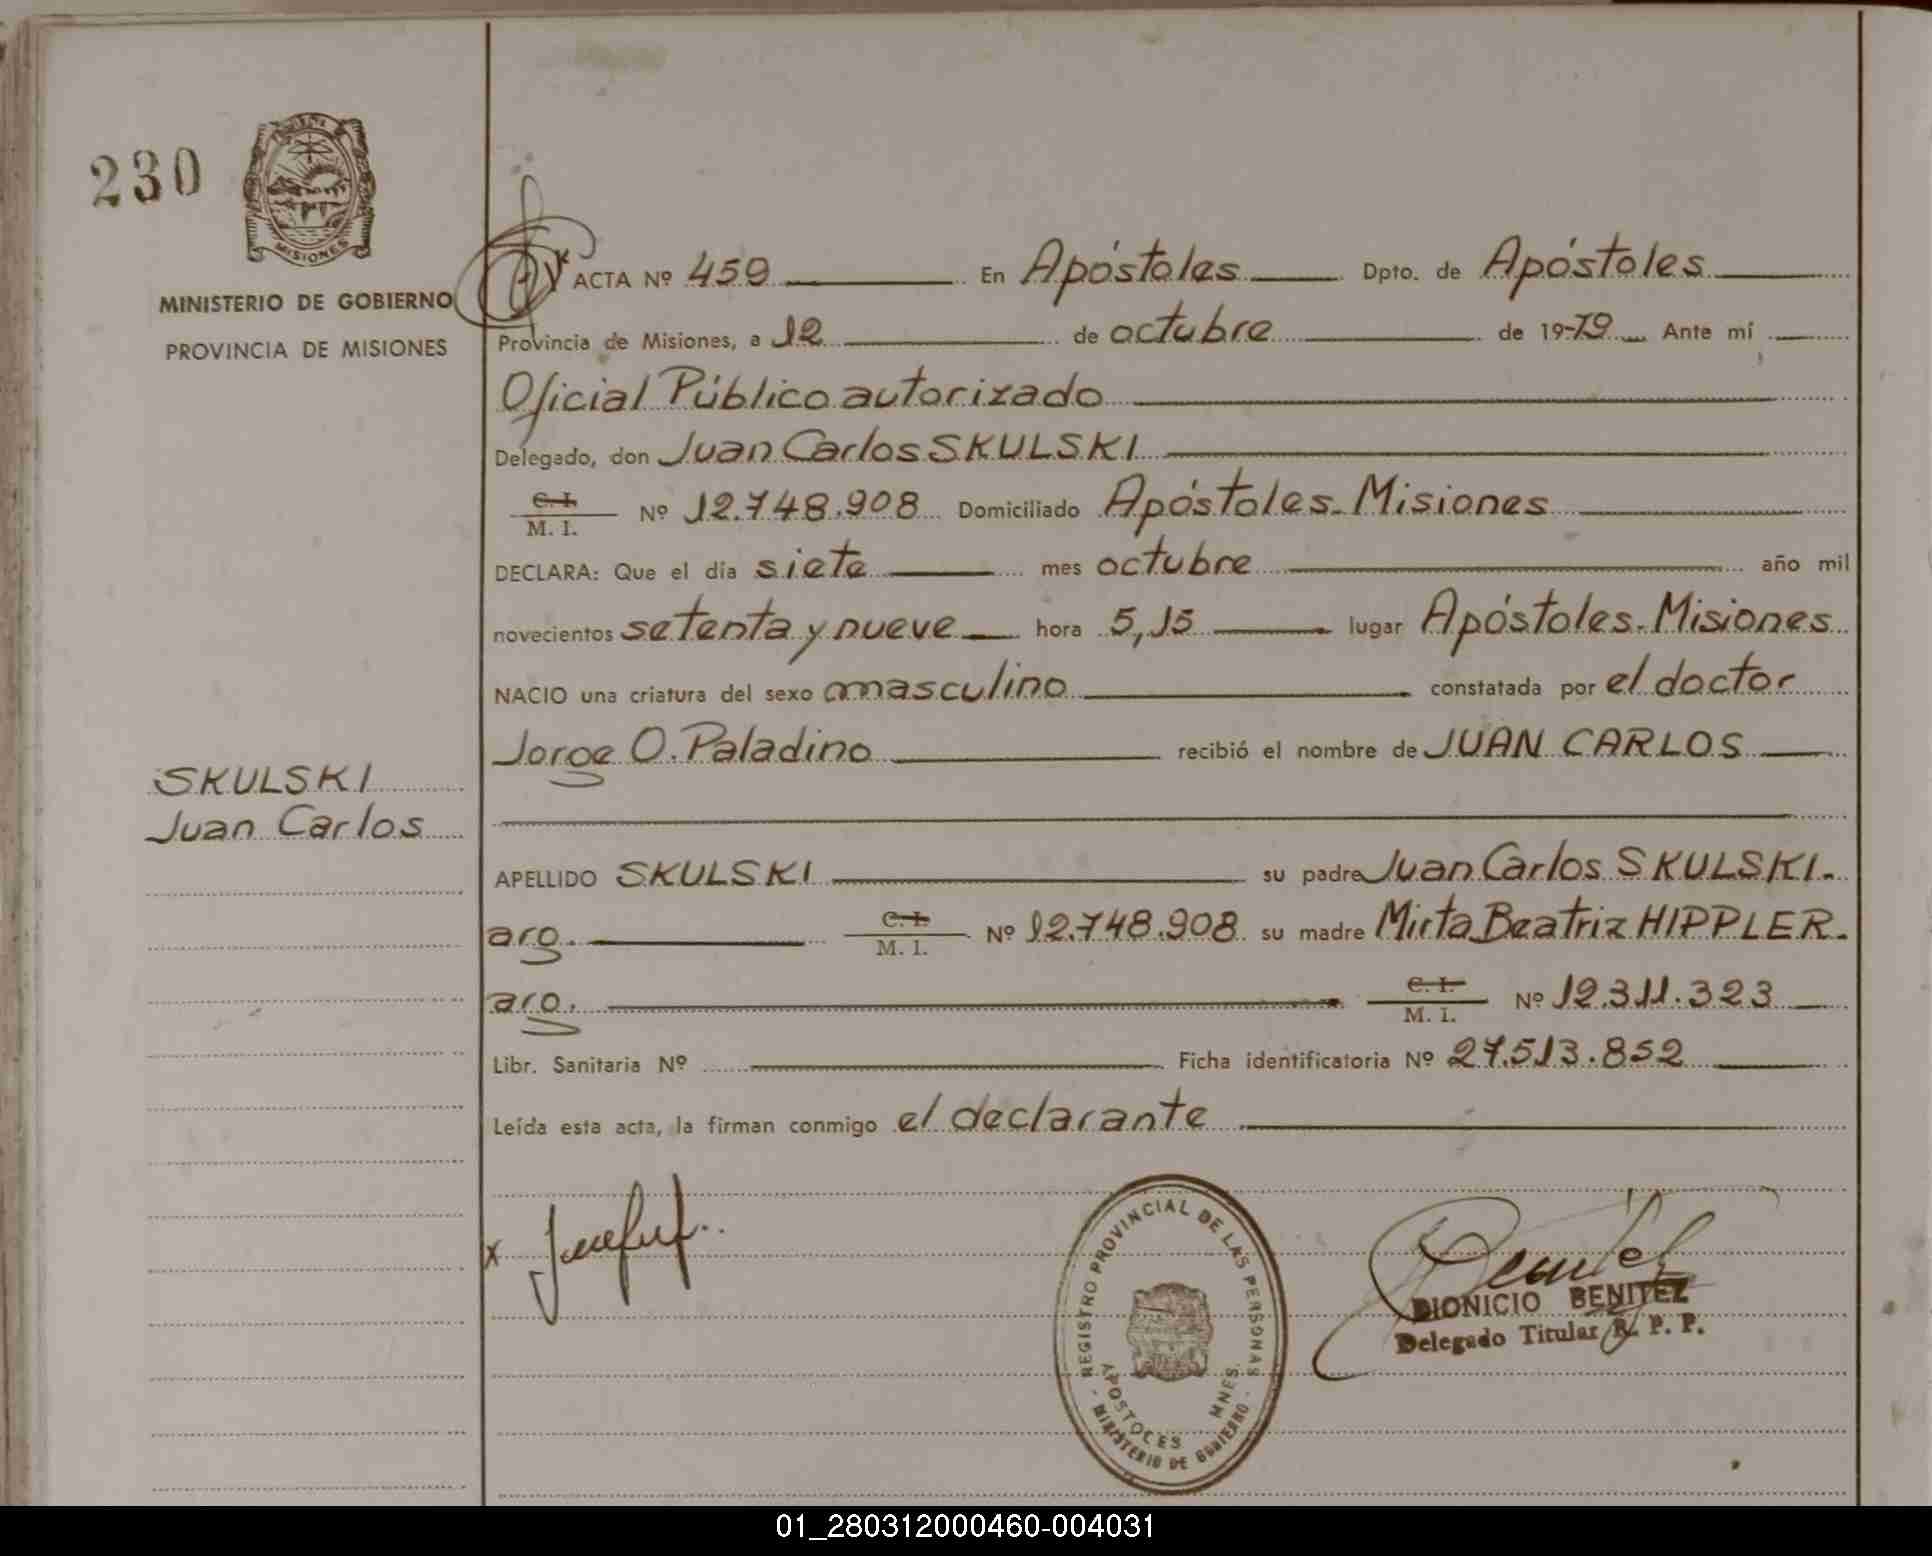 230
MISIONES
MINISTERIO DE GOBIERNO
PROVINCIA DE MISIONES
SKULSKI
Juan Carlos
ACTA Nº 459 En Apóstoles Dpto. de Apóstoles
Provincia de Misiones, a 12 de octubre de 19-79 Ante mí
Oficial Público autorizado
Delegado, don Juan Carlos SKULSKI
C. I.
M. I. Nº 12.748.908 Domiciliado Apóstoles-Misiones
DECLARA: Que el día siete mes octubre año mil
novecientos setenta y nueve hora 5,15 lugar Apóstoles-Misiones
NACIO una criatura del sexo masculino constatada por el doctor
Jorge O. Paladino recibió el nombre de JUAN CARLOS
APELLIDO SKULSKI su padre Juan Carlos SKULSKI.
arg. C. I. M. I. Nº 12.748.908 su madre Mirta Beatriz HIPPLER.
arg. C. I. M. I. Nº 12.311.323
Libr. Sanitaria Nº Ficha identificatoria Nº 27.513.852
Leída esta acta, la firman conmigo el declarante
x
REGISTRO PROVINCIAL DE LAS PERSONAS
APOSTOLES MNES.
- MINISTERIO DE GOBIERNO -
DIONICIO BENITEZ
Delegado Titular R. P. P.
01_280312000460-004031